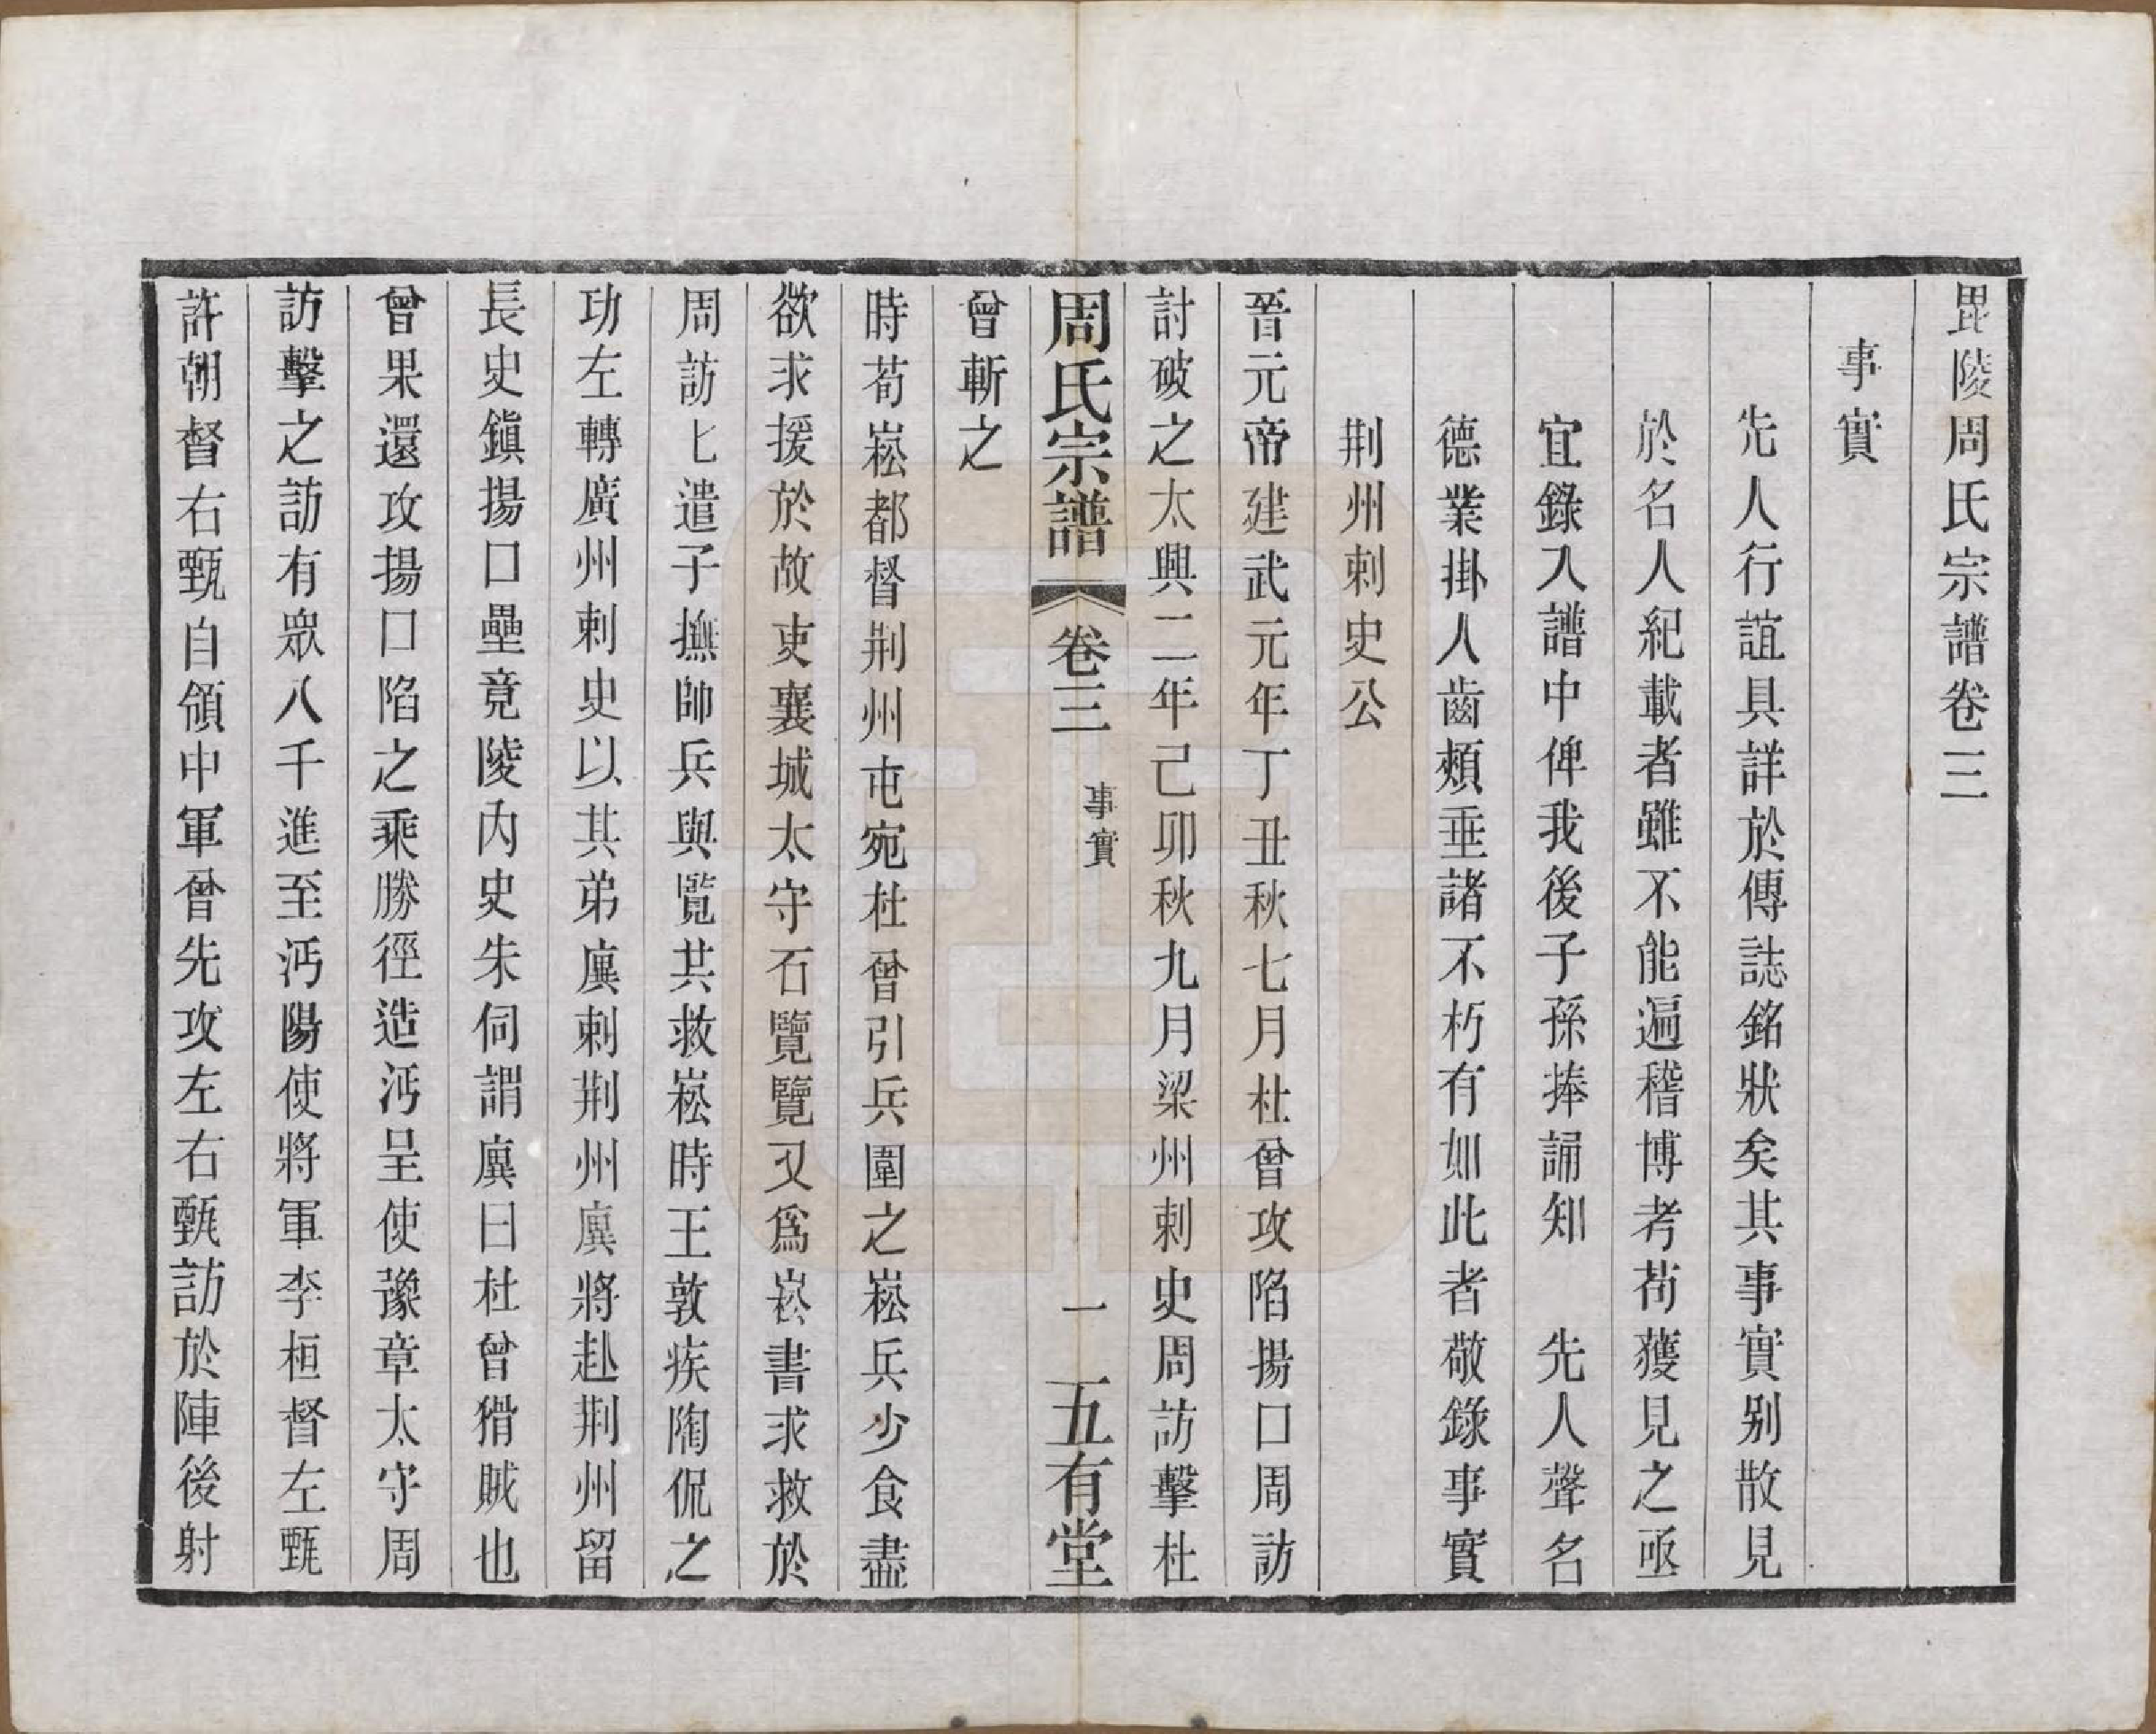 毘陵周氏宗譜卷三
事實
先人行誼具詳於傳誌銘狀矣其事實别散見
於名人紀載者雖不能遍稽博考苟獲見之亟
宜錄入譜中俾我後子孫捧誦知　先人聲名
德業掛人齒頰垂諸不朽有如此者敬錄事實
荆州刺史公
晉元帝建武元年丁丑秋七月杜曾攻陷揚口周訪
討破之太興二年己卯秋九月梁州刺史周訪擊杜
周氏宗譜　卷三　事實　一　五有堂
曾斬之
時荀崧都督荆州屯宛杜曾引兵圍之崧兵少食盡
欲求援於故吏襄城太守石覽覽又爲崧書求救於
周訪訪遣子撫帥兵與覽共救崧時王敦疾陶侃之
功左轉廣州刺史以其弟廙刺荆州廙將赴荆州留
長史鎭揚口壘竟陵内史朱伺謂廙曰杜曾猾賊也
曾果還攻揚口陷之乘勝徑造沔呈使豫章太守周
訪擊之訪有眾八千進至沔陽使將軍李桓督左甄
許朝督右甄自領中軍曾先攻左右甄訪於陣後射